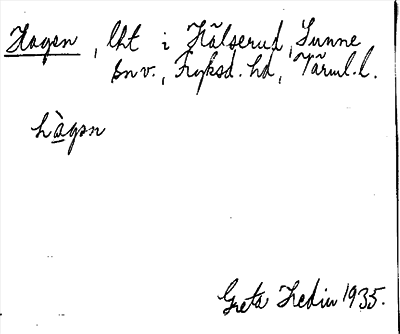 Hagen, lht i Hälserud, Sunne
snv., Fryksd. hd, Värml. l.
hàgən
Greta Hedin 1935.